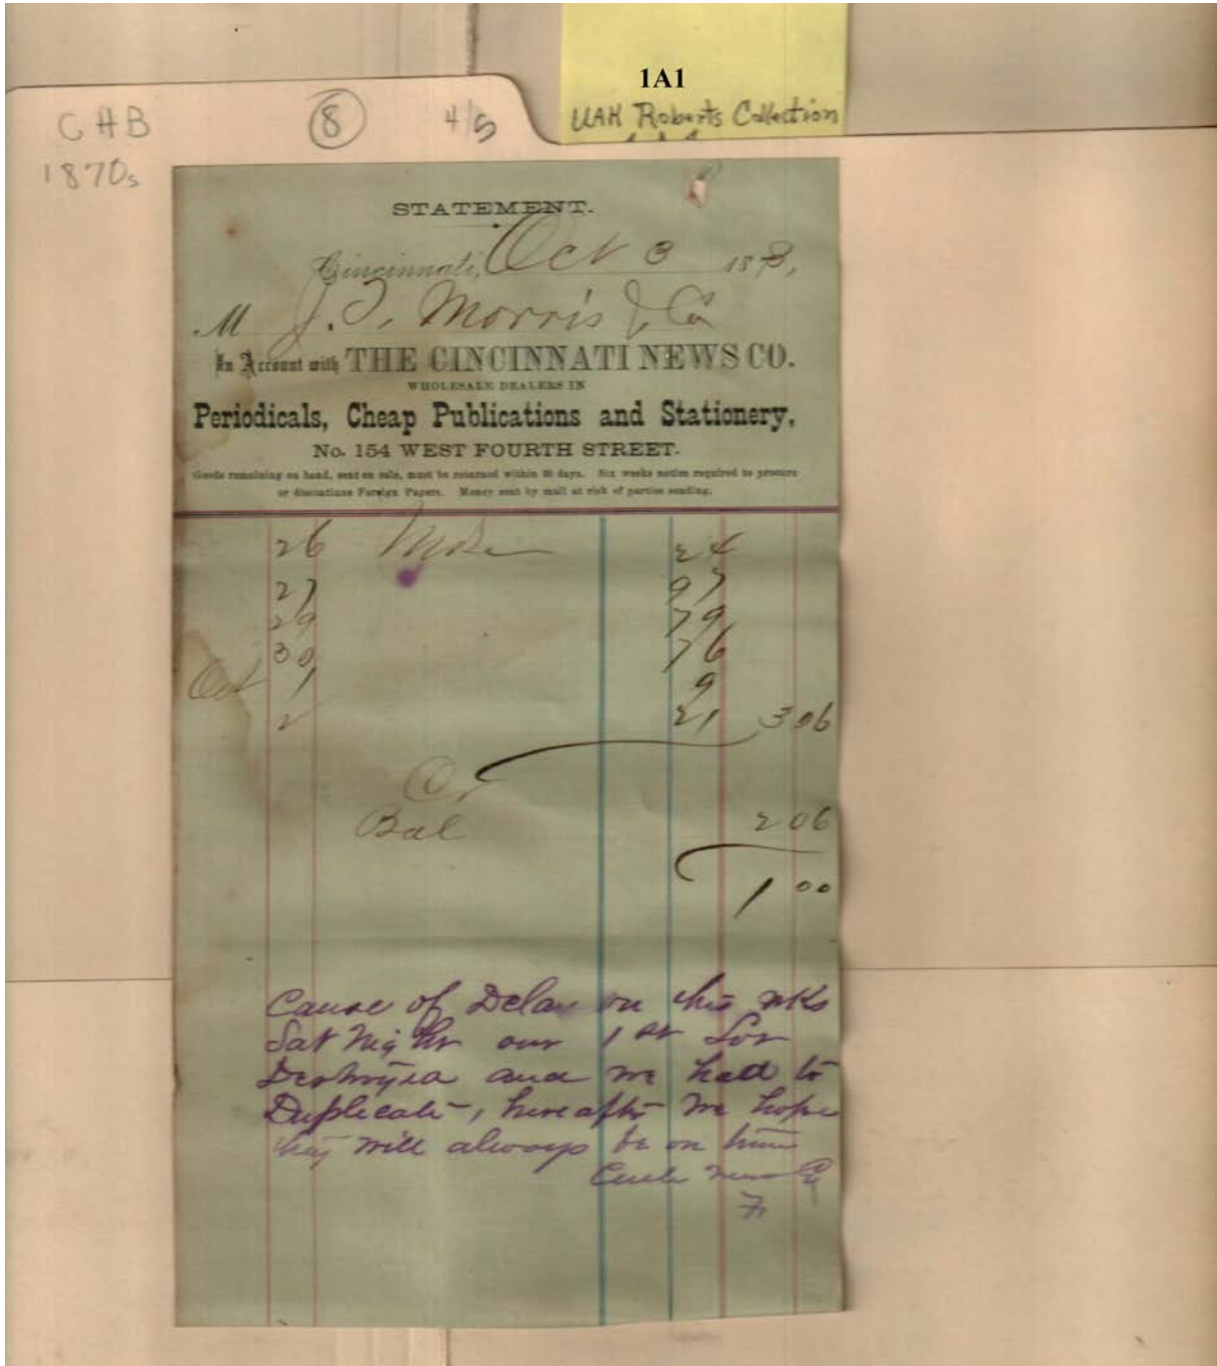 1A1
UAH Roberts Collection
CHB
8
4/5
1870s
STATEMENT.
Cincinnati, Oct 3 187
M J. T. Morris & Co
In Account with THE CINCINNATI NEWS CO.
WHOLESALE DEALERS IN
Periodicals, Cheap Publications and Stationery,
No. 154 WEST FOURTH STREET.
Goods remaining on hand, sent on sale, must be returned within 30 days. Six weeks notice required to procure
or discontinue Foreign Papers. Money sent by mail at risk of parties sending.
26 Mdse 24
27 97
29 79
30 76
Oct 1 9
2 21 3 06
Cr
Bal 2 06
1 00
Cause of Delay on this wks
Sat Night our 1st
Destroyed and we had to
Duplicate, hereafter we hope
they will always be on time
News Co